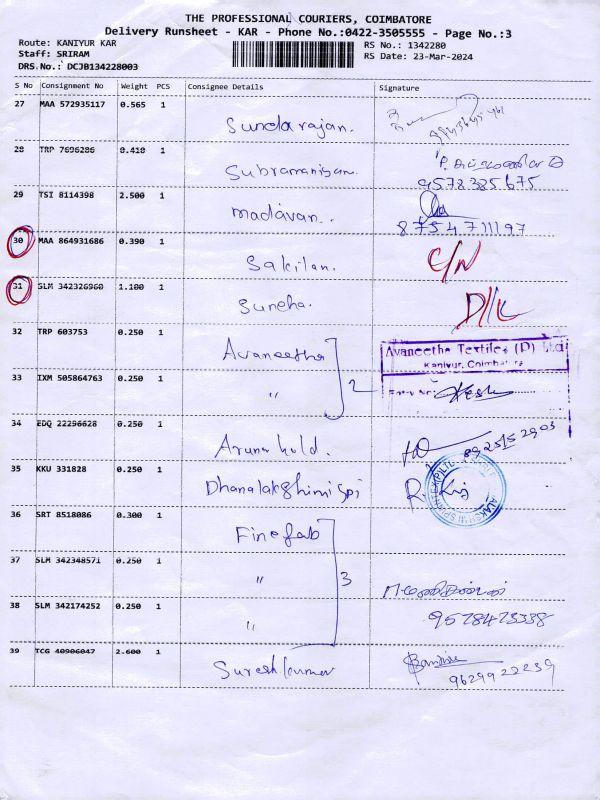 THE PROFESSIONAL COURIERS, COIMBATORE
Delivery Runsheet - KAR - Phone No.:0422-3505555 - Page No.:3
Route: KANIYUR KAR
RS No.: 1342280
Staff: SRIRAM
RS Date: 23-Mar-2024
DRS.No.: DCJB134228003
S No Consignment No Weight PCS Consignee Details Signature
27 MAA 572935117 0.565 1 Sundarajan.
28 TRP 7696286 0.410 1 Subramaniyam 9578385675
29 TSI 8114398 2.500 1 madavan.. 8754711197
30 MAA 864931686 0.390 1 Sakilan. C/N
31 SLM 342326960 1.100 1 Suneha. D/L
32 TRP 603753 0.250 1 Avaneetha
Avaneetha Textiles (P) Ltd
Kaniyur, Coimbatore
33 IXM 505864763 0.250 1 " 2
34 EDQ 22296628 0.250 1 Aruna hold. 8925152903
35 KKU 331828 0.250 1 Dhanalakshimi spi
36 SRT 8518086 0.300 1 Finefab
37 SLM 342348571 0.250 1 " 3
38 SLM 342174252 0.250 1 " 9578473338
39 TCG 40906047 2.600 1 Sureshkumar 9629922239